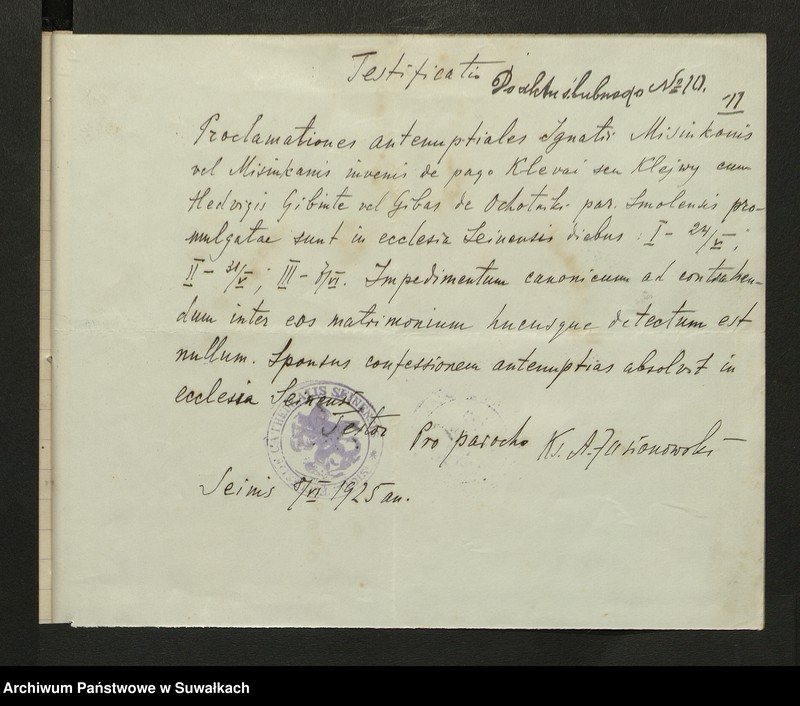 Testificatio Do aktu ślubnego № 10.
11
Proclamationes antenuptiales Ignatii Misinkonis
vel Misinkanis iuvenis de pago Klevai seu Klejwy cum
Hedvigis Gibinte vel Gibas de Ochotniki par. Smolensis pro-
mulgatae sunt in ecclesia Seinensis diebus: I - 24/V;
II - 31/V; III - 7/VI. Impedimentum canonicum ad contrahen-
dum inter eos matrimonium hucusque detectum est
nullum. Sponsus confessionem antenuptias absolvit in
ecclesia Seinensi
Testor Pro parocho Ks. A.
Seinis 8/VI 1925 an.
CATHEDRALIS SEINEN
Archiwum Państwowe w Suwałkach